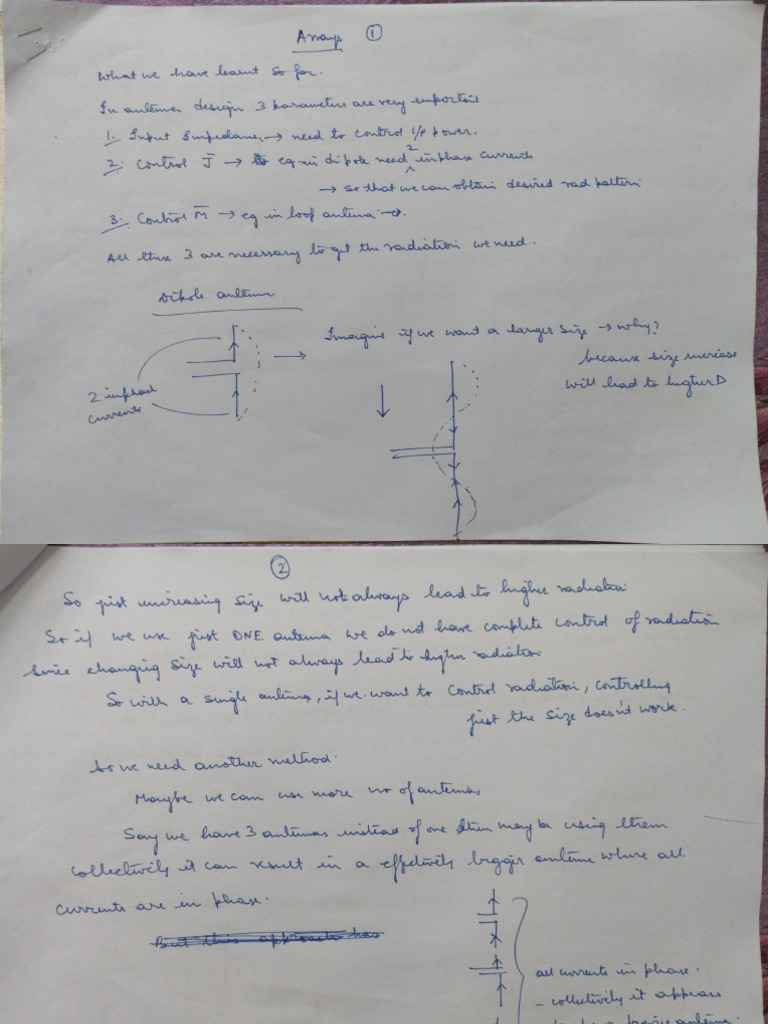 Arrays ①
What we have learnt so far.
In antenna design 3 parameters are very important
1. Input Impedance → need to control i/p power.
2. Control J̄ → eg in dipole need 2 inphase currents
→ so that we can obtain desired rad pattern
3. Control M̄ → eg in loop antenna →.
All these 3 are necessary to get the radiation we need.
Dipole antenna
Imagine if we want a larger size → why?
because size increase
will lead to higher D
2 inphase
currents
②
So just increasing size will not always lead to higher radiation
So if we use just ONE antenna we do not have complete control of radiation
since changing size will not always lead to higher radiation
So with a single antenna, if we want to control radiation, controlling
just the size doesn't work.
So we need another method.
Maybe we can use more no of antennas
Say we have 3 antennas instead of one then maybe using them
collectively it can result in a effectively bigger antenna where all
currents are in phase.
But this approach has
all currents in phase.
- collectively it appears